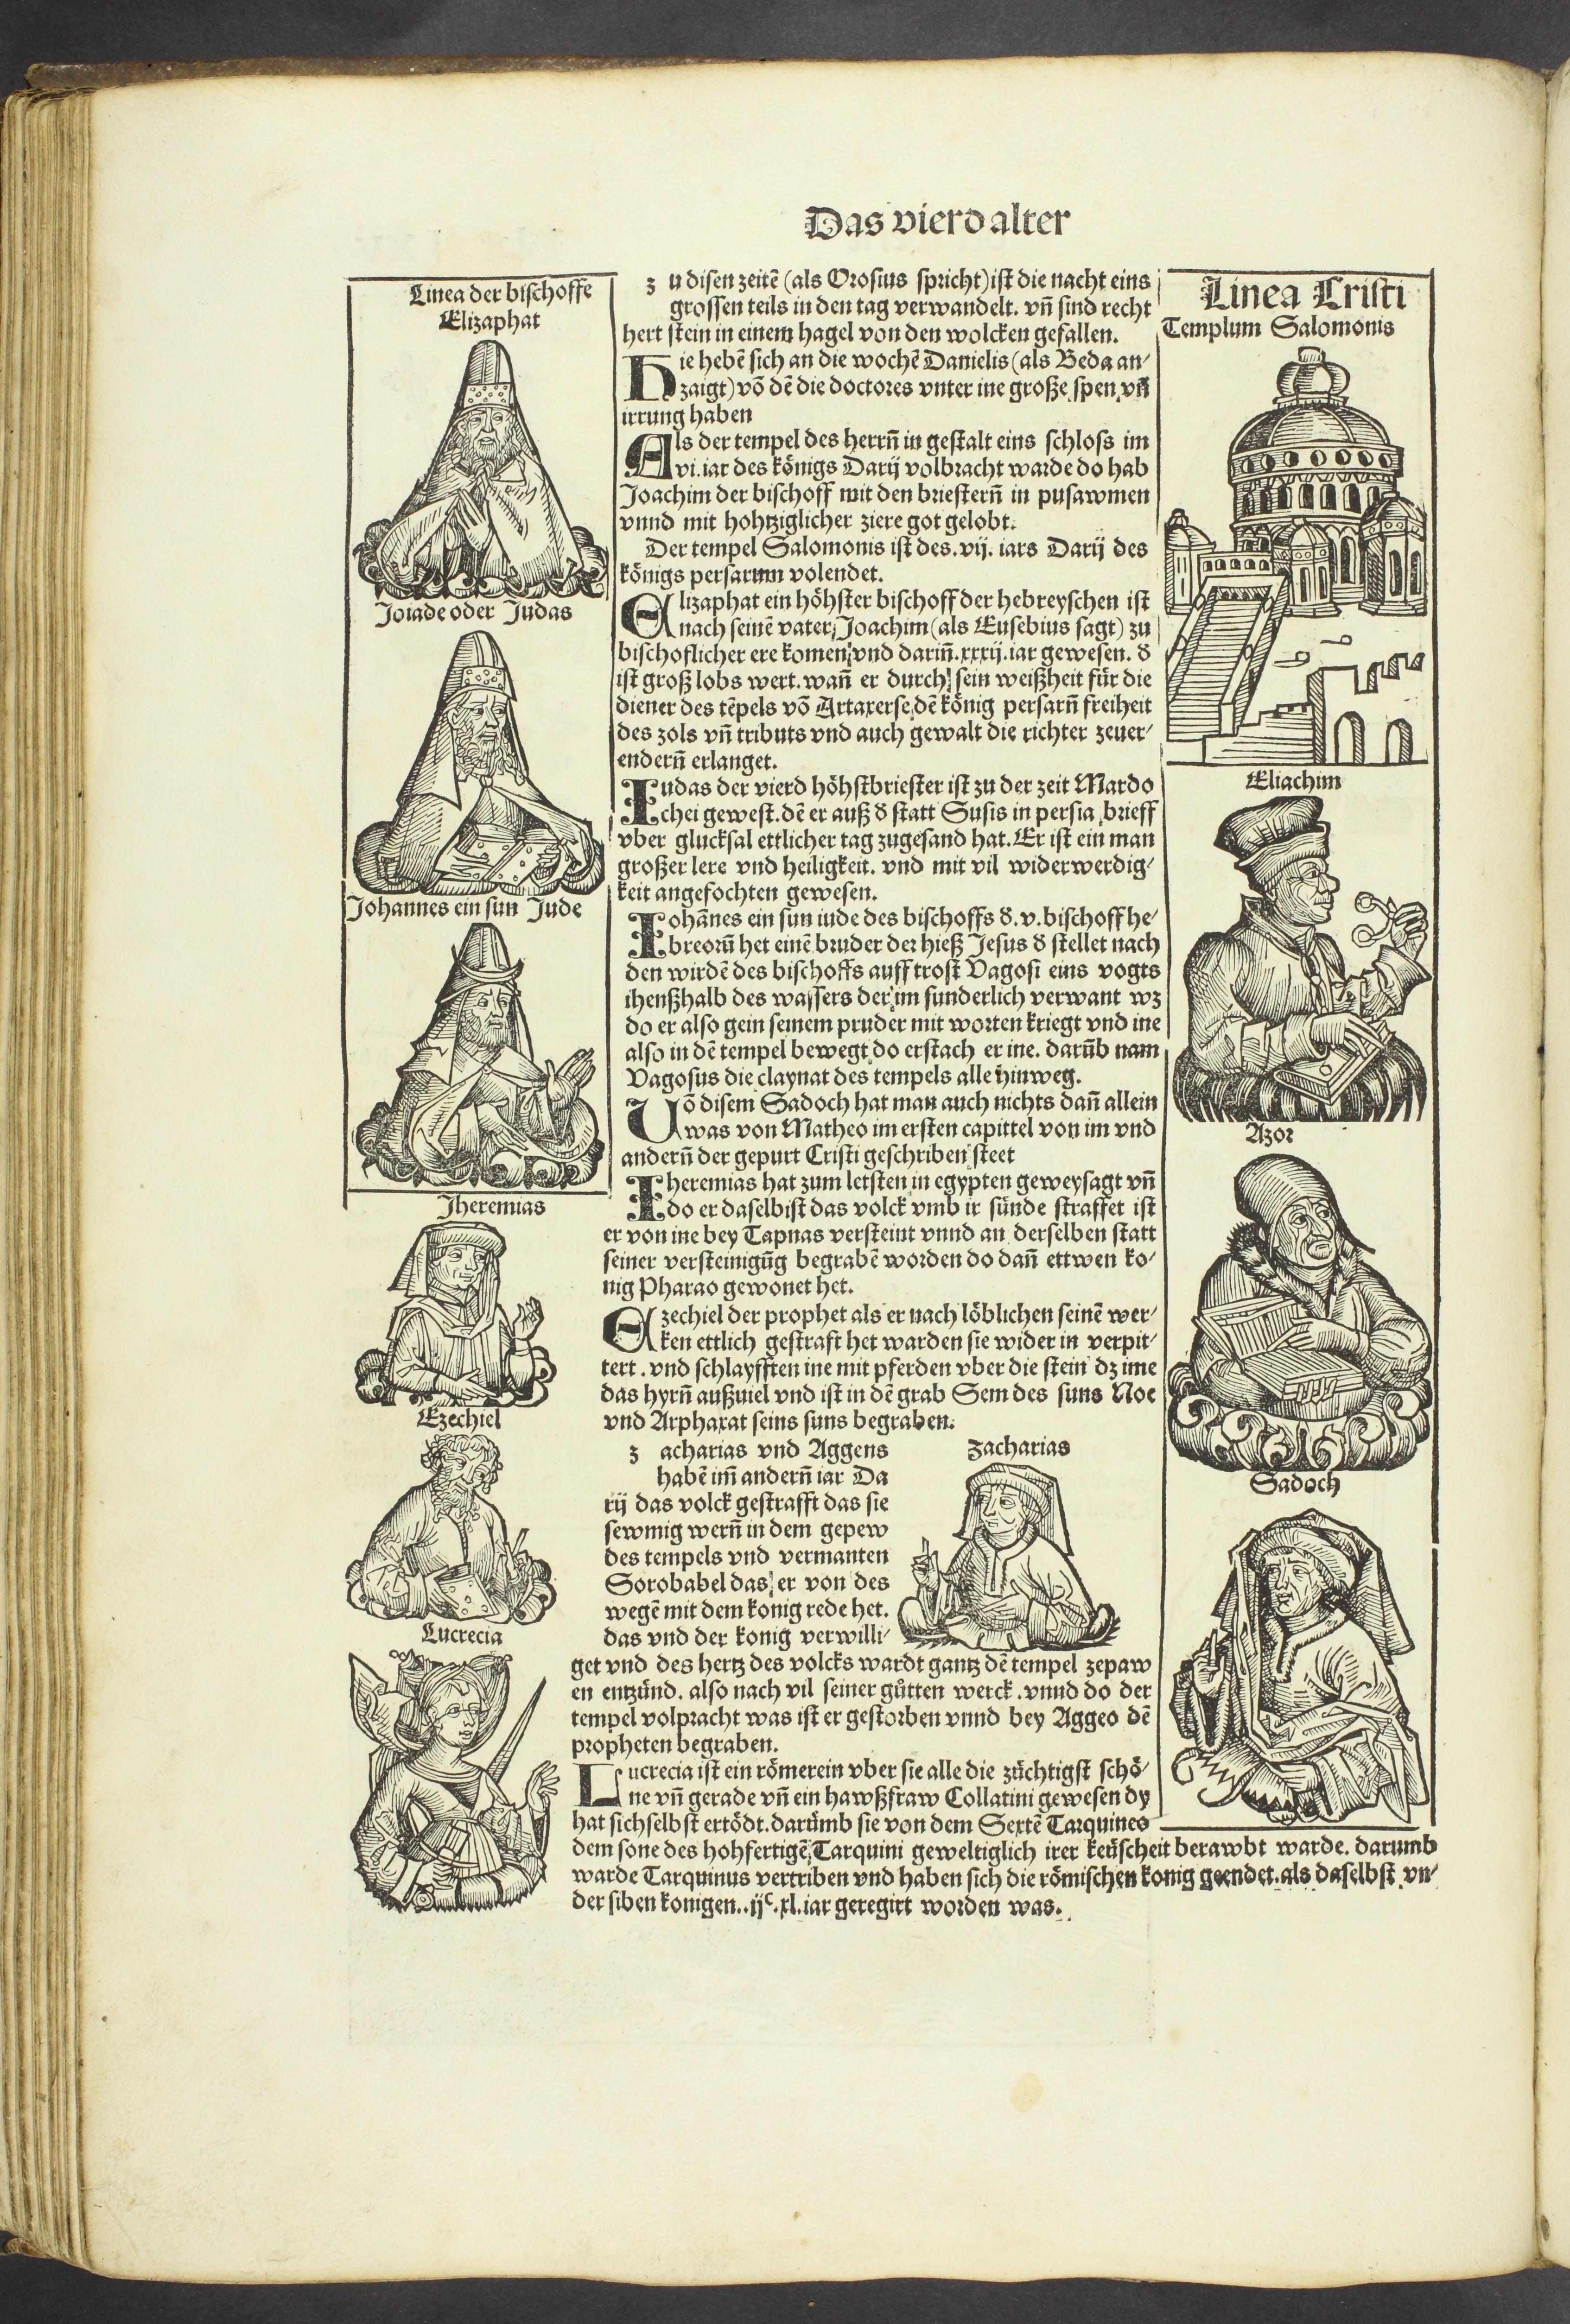 Das vierd alter
Linea der bischoffe
Elizaphat
Joiade oder Judas
Johannes ein sun Jude
Jheremias
Ezechiel
Lucrecia
zu disen zeitē (als Orosius spricht) ist die nacht eins
grossen teils in den tag verwandelt. vñ sind recht
hert stein in einem hagel von den wolcken gefallen.
Hie hebē sich an die wochē Danielis (als Beda an-
zaigt) vō dē die doctores vnter ine große spen vñ
irrung haben
Als der tempel des herrñ in gestalt eins schloss im
vi. iar des königs Darij volbracht warde do hab
Joachim der bischoff mit den briesterñ in pusawmen
vnnd mit hohtziglicher ziere got gelobt.
Der tempel Salomonis ist des .vij. iars Darij des
königs persarum volendet.
Elizaphat ein höhster bischoff der hebreyschen ist
nach seinē vater Joachim (als Eusebius sagt) zu
bischoflicher ere komen vnd dariñ .xxxij. iar gewesen. d
ist groß lobs wert. wañ er durch sein weißheit für die
diener des tēpels vō Artaxerse dē könig persarñ freiheit
des zols vñ tributs vnd auch gewalt die richter zeuer-
enderñ erlanget.
Judas der vierd höhstbriester ist zu der zeit Mardo
chei gewest. dē er auß d statt Susis in persia brieff
vber glucksal ettlicher tag zugesand hat. Er ist ein man
großer lere vnd heiligkeit. vnd mit vil widerwerdig-
keit angefochten gewesen.
Johānes ein sun iude des bischoffs d. v. bischoff he-
breorū het einē bruder der hieß Jesus d stellet nach
den wirdē des bischoffs auff trost Vagosi eins vogts
ihenßhalb des wassers der im sunderlich verwant wz
do er also gein seinem pruder mit worten kriegt vnd ine
also in dē tempel bewegt do erstach er ine. darūb nam
Vagosus die claynat des tempels alle hinweg.
Uō disem Sadoch hat man auch nichts dañ allein
was von Matheo im ersten capittel von im vnd
anderñ der gepurt Cristi geschriben steet
Jheremias hat zum letsten in egypten geweysagt vñ
do er daselbist das volck vmb ir sünde straffet ist
er von ine bey Tapnas versteint vnnd an derselben statt
seiner versteinigūg begrabē worden do dañ ettwen ko-
nig Pharao gewonet het.
Ezechiel der prophet als er nach löblichen seinē wer-
ken ettlich gestraft het warden sie wider in verpit-
tert. vnd schlayfften ine mit pferden vber die stein dz ime
das hyrñ außuiel vnd ist in dē grab Sem des suns Noe
vnd Arphaxat seins suns begraben.
zacharias vnd Aggens
habē im̄ anderñ iar Da
rij das volck gestrafft das sie
sewmig werñ in dem gepew
des tempels vnd vermanten
Sorobabel das er von des
wegē mit dem konig rede het.
das vnd der konig verwilli-
get vnd des hertz des volcks wardt gantz dē tempel zepaw
en entzünd. also nach vil seiner gůtten werck. vnnd do der
tempel volpracht was ist er gestorben vnnd bey Aggeo dē
propheten begraben.
Lucrecia ist ein römerein vber sie alle die züchtigst schö-
ne vñ gerade vñ ein hawßfraw Collatini gewesen dy
hat sichselbst ertödt. darümb sie von dem Sextē Tarquines
dem sone des hohfertigē Tarquini geweltiglich irer keüscheit berawbt warde. darumb
warde Tarquinus vertriben vnd haben sich die römischen konig geendet. als daselbst vn-
der siben konigen..ijᶜ.xl. iar geregirt worden was.
zacharias
Linea Cristi
Templum Salomonis
Eliachim
Azor
Sadoch